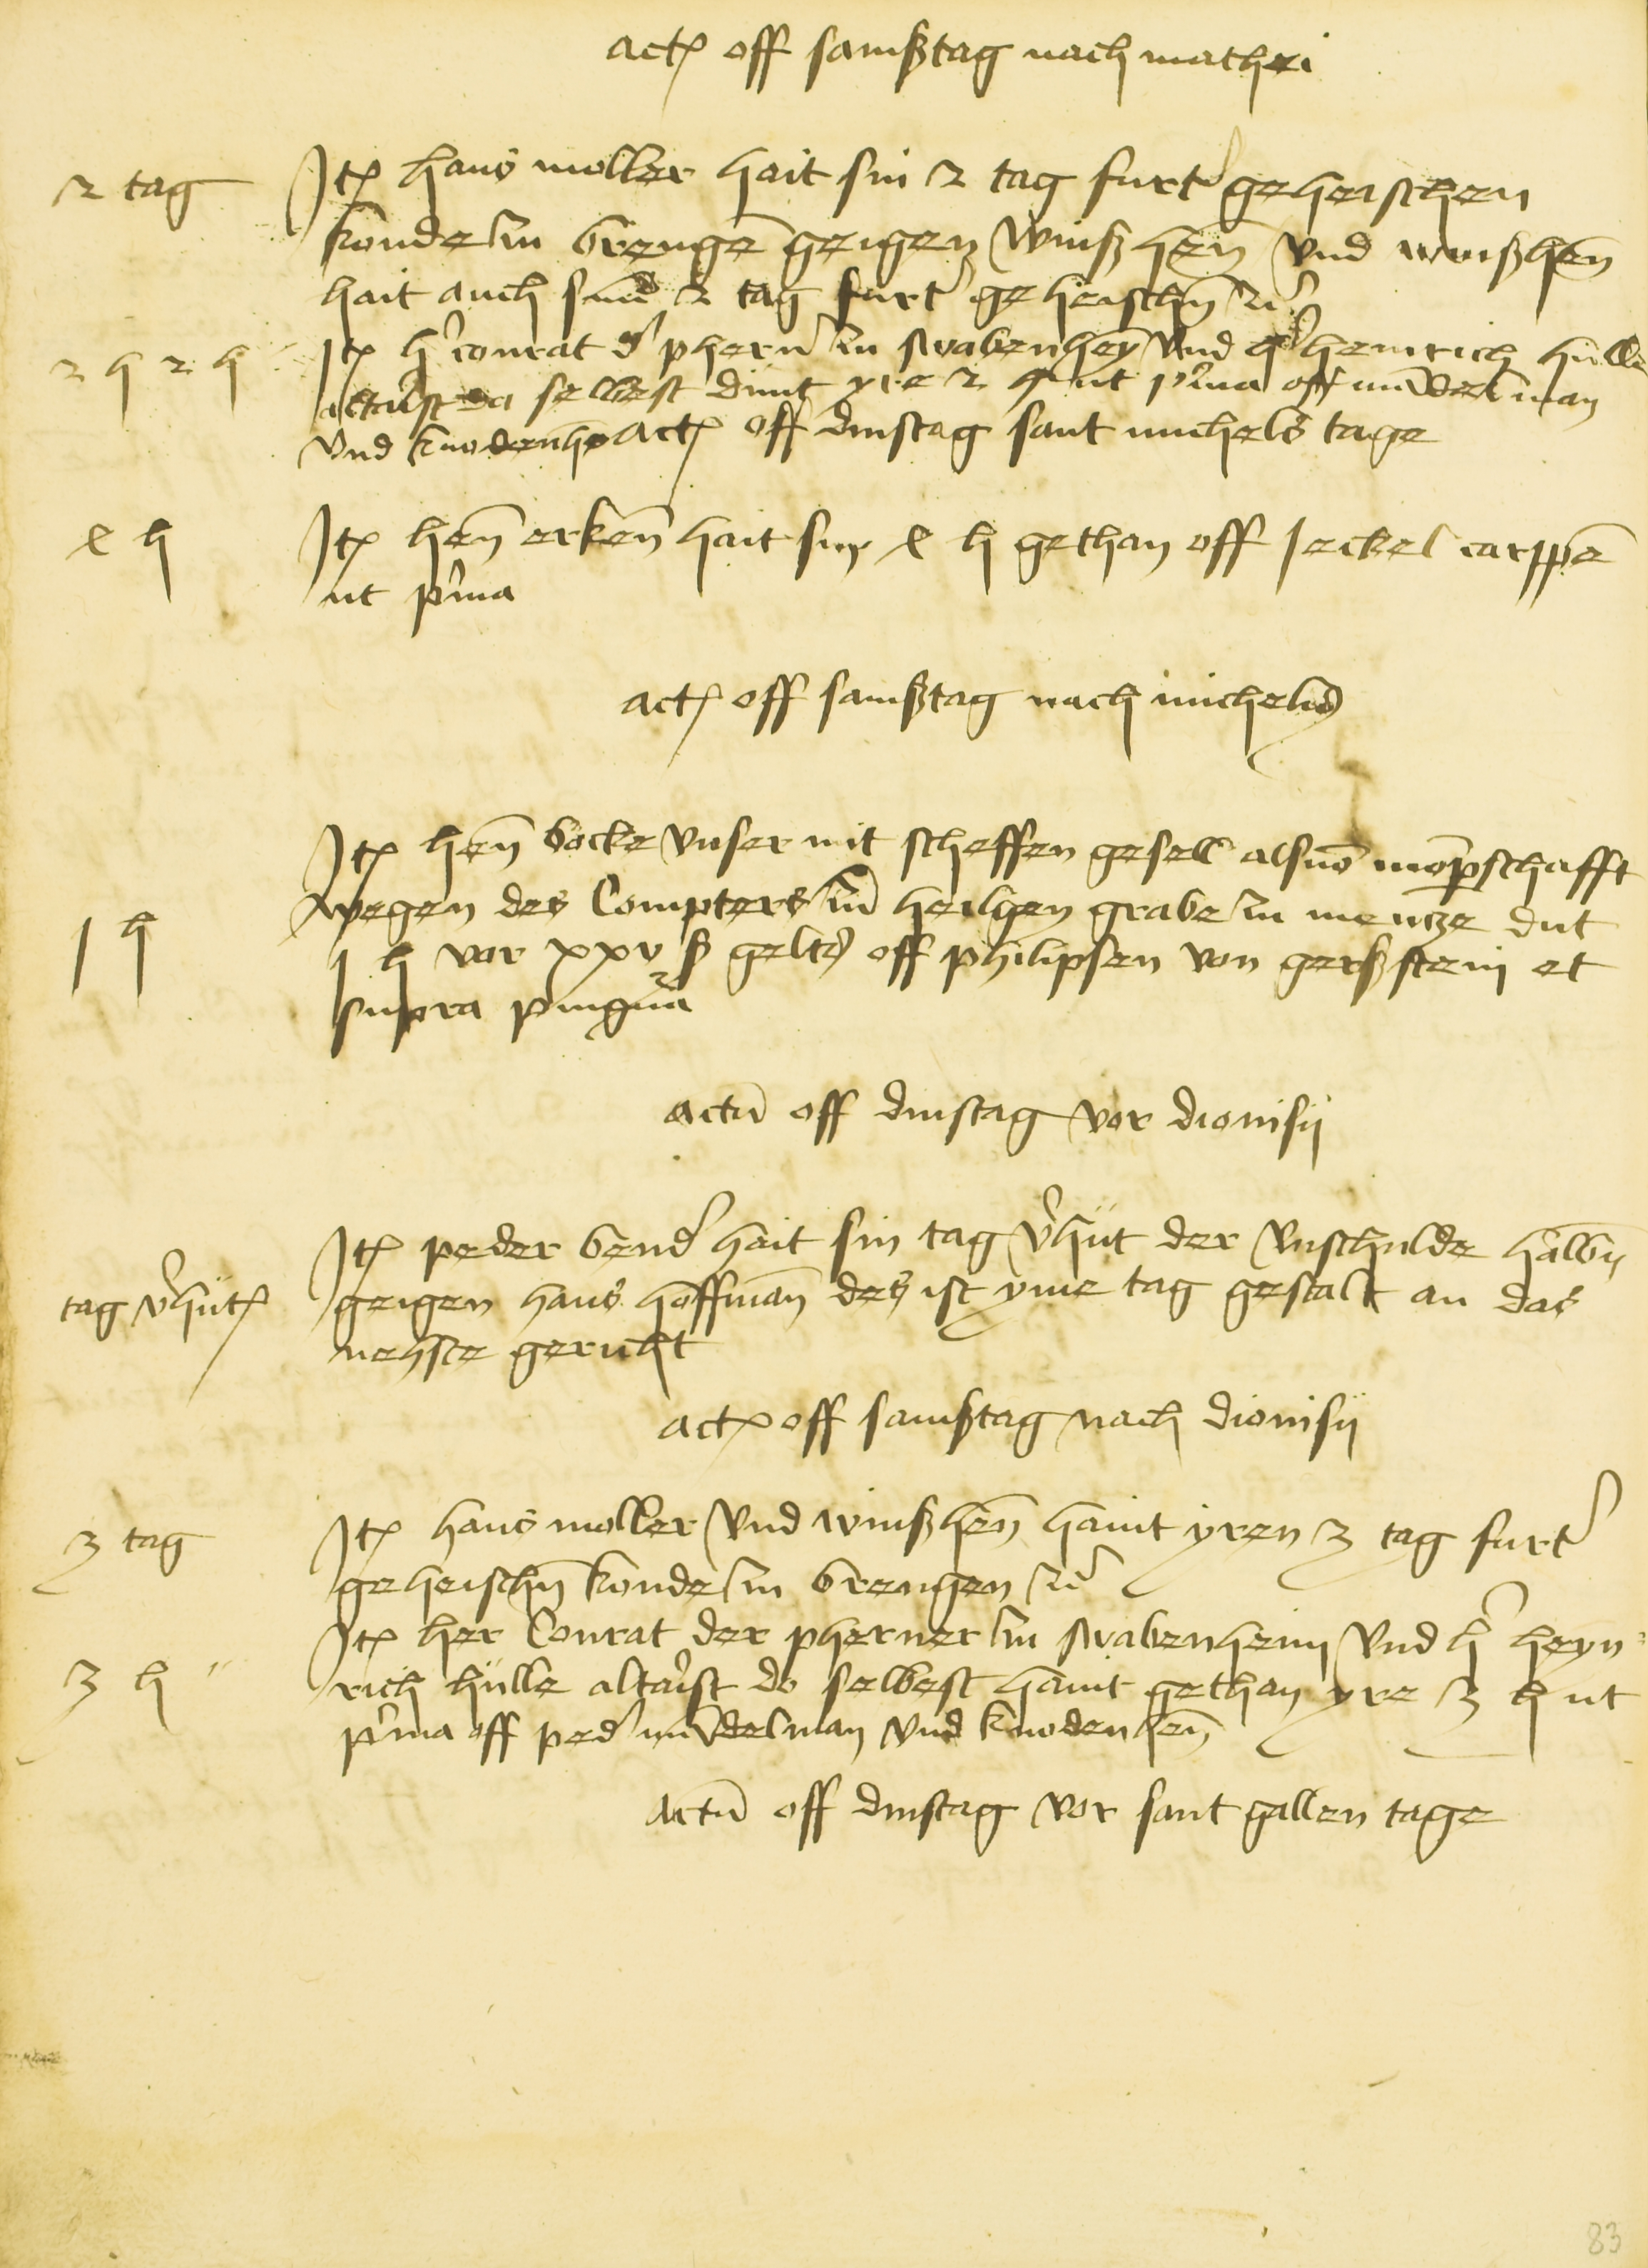 actum off samßtag nach mathei
2 tag
Itm hans moller hait sin 2 tag furter geheischen
konde zu brenge geigen winßhen und winßhen
hait auch sinen 2 tag furter geheischen zu
2 h 2 h
Itm her conrat der pherner zu swabenheym und her heinrich hulle
altarist da selbest dunt yre 2 h ut prima off mudelman
und knodenhen Actum off dinstag sant michels tage
e h
Itm hen erken hait sin e h gethan off Jeckel carppe
ut prima
actum off samßtag nach michelis
Itm hen bocke unser mit scheffen gesell als mompschafft
wegen des Compters zum heilgen grabe zu mentze dut
1 h
1 h vor xxv ß geltz off philipsen von gerßstein et
supra pingnora
actum off dinstag vor dionisij
Itm peder bender hait sin tag verhut der unschulde halben
tag verhut
geigen hans hoffman des ist yme tag gestalt an das
nehste gericht
actum off samßtag nach dionisij
3 tag
Itm hans moller und winßhen haint yren 3 tag furter
geheischen konde zu brengen zu
Itm her Conrat der pherner zu swabenheim und her heyn
3 h
rich hulle altarist do selbest haint gethan yre 3 h ut
prima off peder mudelman und knodenhen
actum off dinstag vor sant gallen tage
83